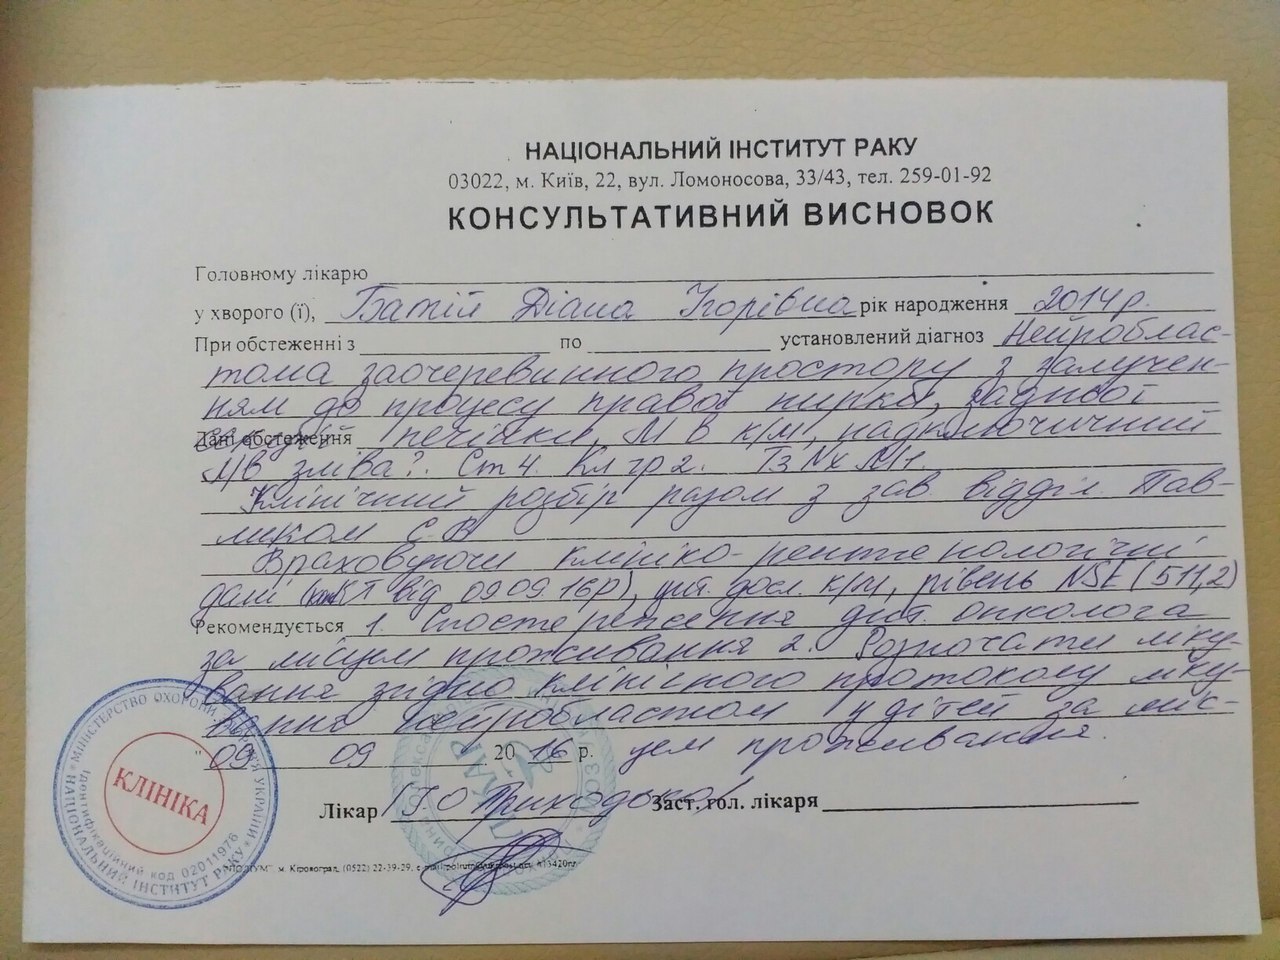 НАЦІОНАЛЬНИЙ ІНСТИТУТ РАКУ
03022, м. Київ, 22, вул. Ломоносова, 33/43, тел. 259-01-92
КОНСУЛЬТАТИВНИЙ ВИСНОВОК
Головному лікарю
у хворого (ї), Батій Діана Ігорівна рік народження 2014 р.
При обстеженні з по установлений діагноз Нейроблас-
тома заочеревинного простору з залучен-
ням до процесу правої нирки, задньої
Дані обстеження печінки, М в к/м, надключичний
М/в зліва?. Ст 4. Кл гр 2. T3 Nx M1.
Клінічний розбір разом з зав відділ. Пав-
ликом С.
Враховуючи клініко-рентгенологічні
дані (КТ від 09 09 16р), цит. досл. к/м, рівень NSE (511,2)
Рекомендується 1. Спостереження дит. онколога
за місцем проживання 2. Розпочати ліку-
вання згідно клінісного протоколу ліку-
вання нейробластом у дітей за міс-
" 09 09 2016 р. цем проживання.
Лікар Ю Приходько Заст. гол. лікаря
"ПОЛІУМ" м. Кіровоград, (0522) 22-39-29,
МІНІСТЕРСТВО ОХОРОНИ УКРАЇНИ
НАЦІОНАЛЬНИЙ ІНСТИТУТ РАКУ
Ідентифікаційний код 02011976
КЛІНІКА
ЛІКАР